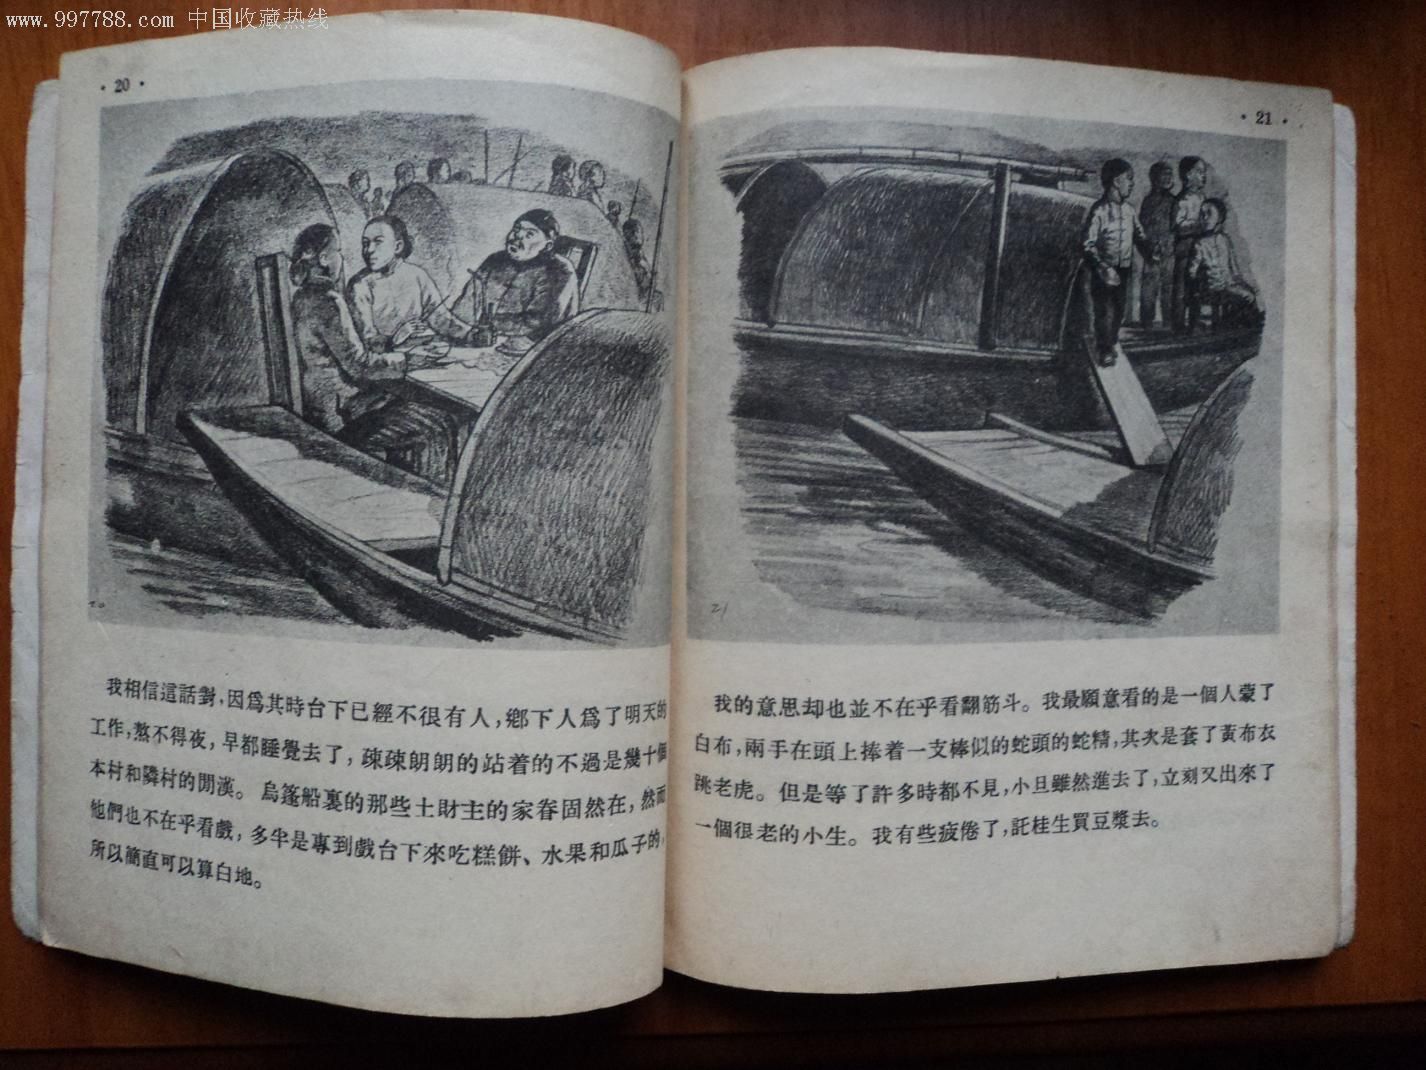 www.997788.com 中国收藏热线
·20·
20
我相信這話對，因爲其時台下已經不很有人，鄉下人爲了明天的
工作，熬不得夜，早都睡覺去了，疎疎朗朗的站着的不過是幾十個
本村和隣村的閒漢。烏篷船裏的那些土財主的家眷固然在，然而
他們也不在乎看戲，多半是專到戲台下來吃糕餅、水果和瓜子的，
所以簡直可以算白地。
·21·
21
我的意思却也並不在乎看翻筋斗。我最願意看的是一個人蒙了
白布，兩手在頭上捧着一支棒似的蛇頭的蛇精，其次是套了黃布衣
跳老虎。但是等了許多時都不見，小旦雖然進去了，立刻又出來了
一個很老的小生。我有些疲倦了，託桂生買豆漿去。